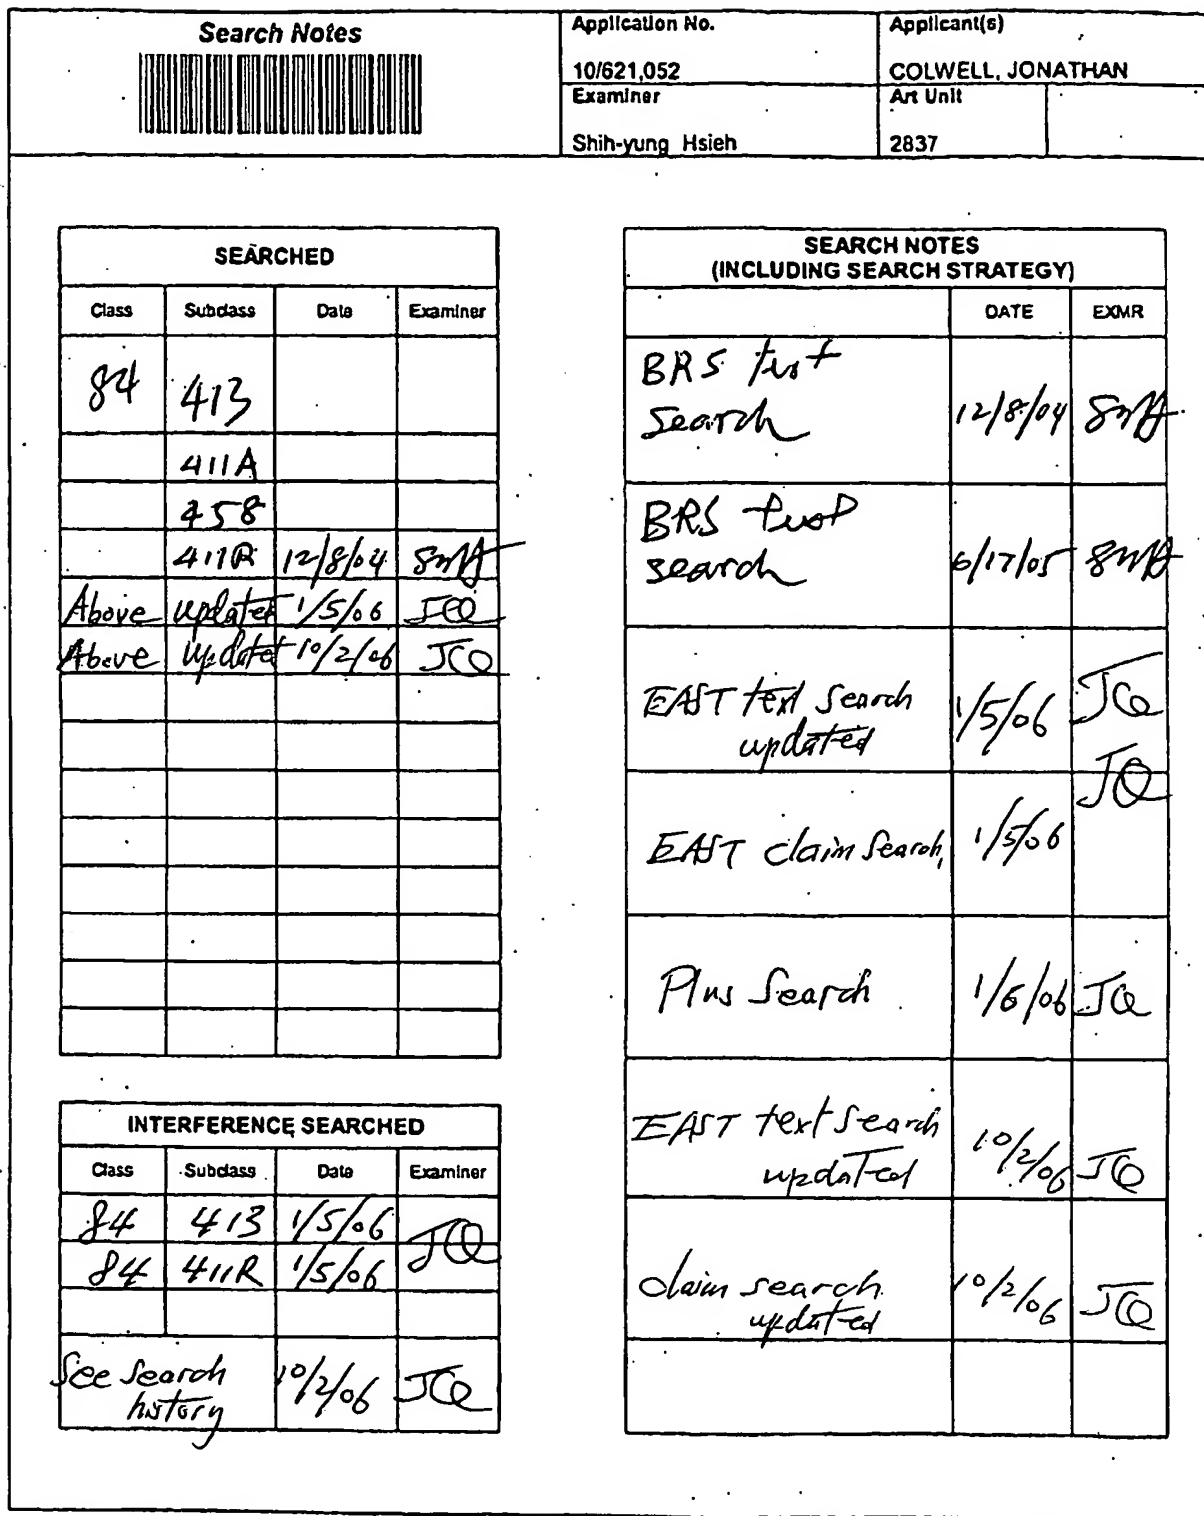 Search Notes
Application No.
10/621,052
Applicant(s)
COLWELL, JONATHAN
Examiner
Shih-yung Hsieh
Art Unit
2837
SEARCHED
Class Subclass Date Examiner
84 413
411A
458
411R 12/8/04
Above updated 1/5/06 JCQ
Above updated 10/2/06 JCQ
INTERFERENCE SEARCHED
Class Subclass Date Examiner
84 413 1/5/06 JCQ
84 411R 1/5/06
See search 10/2/06 JCQ
history
SEARCH NOTES
(INCLUDING SEARCH STRATEGY)
DATE EXMR
BRS text
search 12/8/04
BRS text
search 6/17/05
EAST text search 1/5/06 JCQ
updated
JCQ
EAST claim search 1/5/06
Plus search 1/6/06 JCQ
EAST text search 10/2/06 JCQ
updated
claim search 10/2/06 JCQ
updated